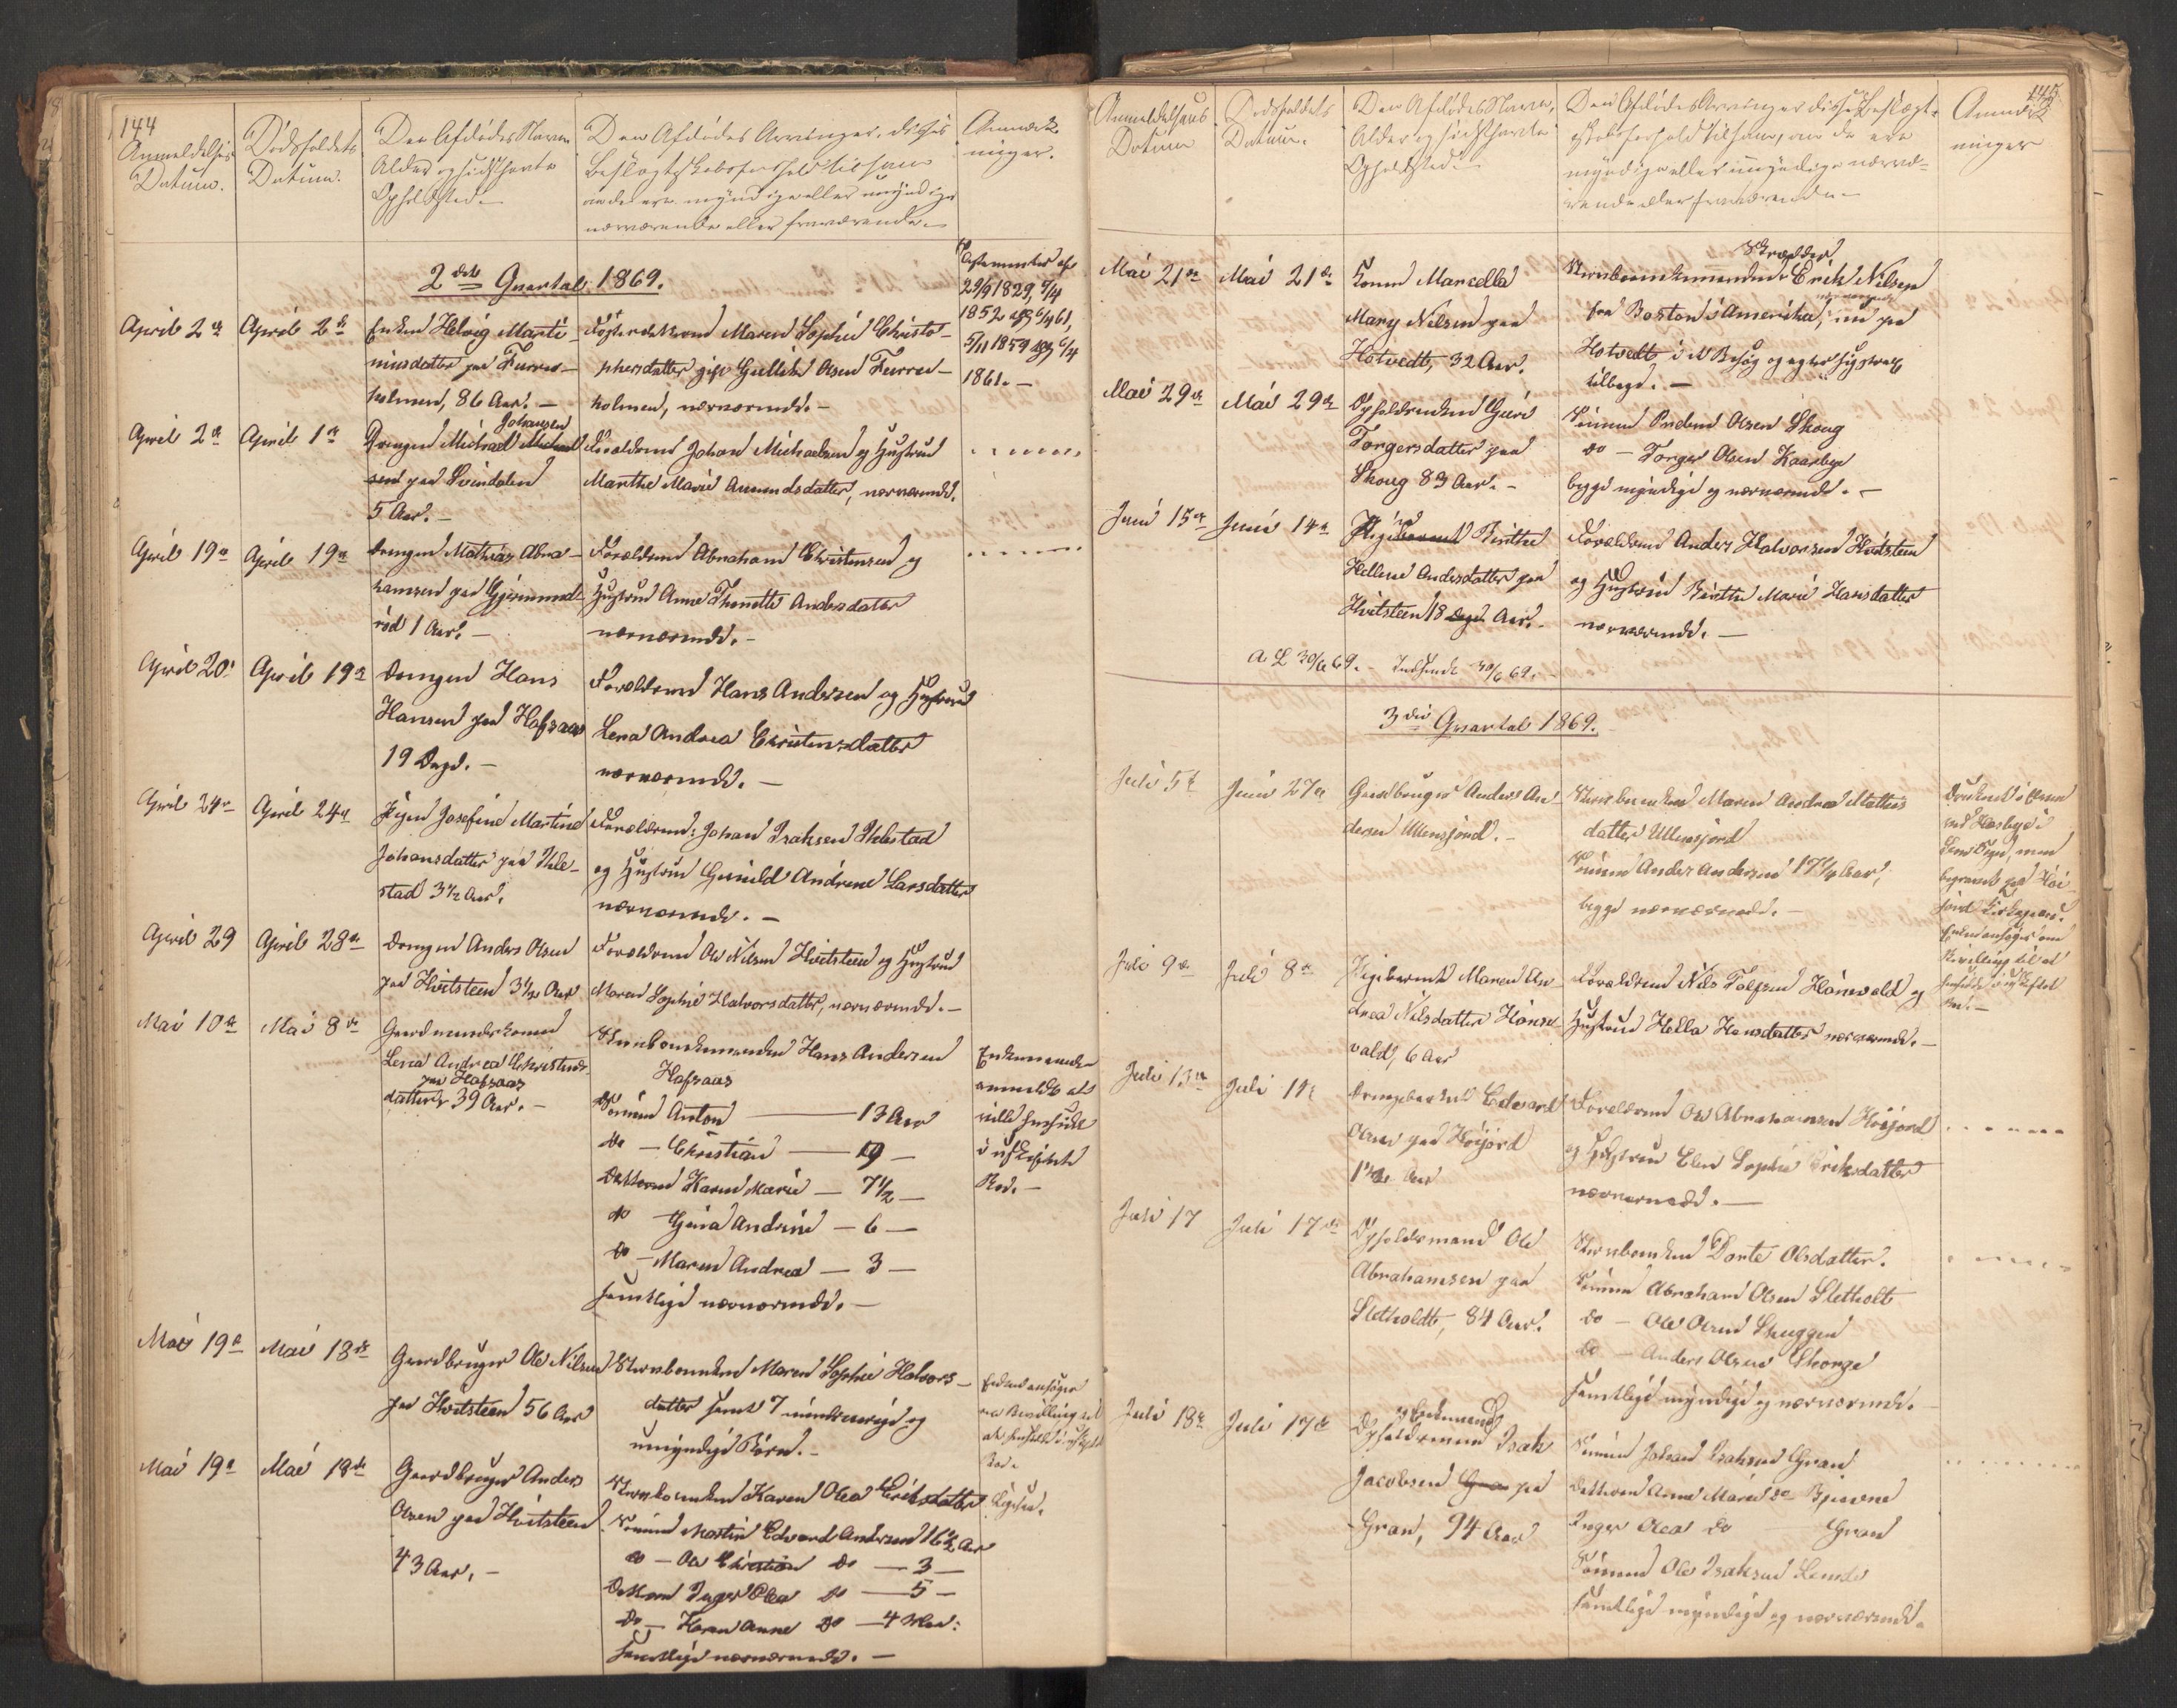 144
Anmeldelses Datum.
Dødsfaldets Datum.
Den Afdødes Navn
Alder og sidsthavte
Opholdsted.
Den Afdødes Arvinger, disses
Beslægtskabsforhold til ham
om de ere myndige eller umyndige
nærværende eller fraværende.
Anmærk-
ninger.
2det Qvartal 1869.
April 2den
April 2d
Enken Helvig Marti-
niusdatter paa Furru-
holmen, 86 Aar. —
Fosterdatteren Maren Sophie Christo-
phersdatter gift Gullik Olsen Furru-
holmen, nærværende. —
Testamenter af
29/9 1829, 5/4
1852 og 6/4 61,
5/11 1859 og 6/4
1861. —
April 2den
April 1ste
Johansen
Drengen Michael
paa Svindalen
5 Aar. —
Forældrene Johan Michaelsen og Hustrue
Marthe Marie Amundsdatter, nærværende.
April 19de
April 19de
Drengen Mathias Abra-
hamsen paa Gjerinmed-
rød 1 Aar. —
Forældrene Abraham Christensen og
Hustrue Anne Thonette Andersdatter
nærværende. —
April 20
April 19de
Drengen Hans
Hansen paa Hafsaas
19 Dage. —
Forældrene Hans Andersen og Hustrue
Lena Andrea Christensdatter
nærværende. —
April 24de
April 24de
Pigen Josefine Martine
Johansdatter paa Hele-
stad 3 1/2 Aar.
Forældrene: Johan Isaksen Helestad
og Hustrue Gunild Andrine Larsdatter
nærværende. —
April 29
April 28de
Drengen Anders Olsen
paa Hvitsteen 3 1/2 Aar
Forældrene Ole Nilsen Hvitsteen og Hustrue
Maren Sophie Halvorsdatter, nærværende. —
Mai 10de
Mai 8de
Gaardmandskonen
Lena Andrea Christens-
paa Hafsaas
datter 39 Aar. —
Stervboenkemanden Hans Andersen
Hafsaas
Sønnen Anton — 13 Aar
do — Christian — 19 —
Datteren Karen Marie — 7 1/2 —
do Andrine — 6 —
do — Maren Andrea — 3 —
samtlige nærværende. —
Enkemanden
anmeldte at
ville hensidde
i uskiftet
Bo. —
Mai 19de
Mai 18de
Gaardbruger Ole Nilsen
paa Hvitsteen 56 Aar
Stervboenken Maren Sophie Halvors-
datter samt 7 mindreaarige og
umyndige Børn. —
Enken ansøger
om Bevilling til
at hensidde i uskiftet
Bo.
Mai 19de
Mai 18de
Gaardbruger Anders
Olsen paa Hvitsteen
43 Aar. —
Stervboenken Karen Olea Eriksdatter
Sønnen Martin Edvard Andersen 16 1/2 Aar
do — Ole Christian do — 3 —
Datteren Inger Olea do — 5 —
do — Karen Anne do — 4 Md:
samtlige nærværende. —
Ligesaa.
145
Anmeldelsens
Datum
Dødsfaldets
Datum.
Den Afdødes Navn,
Alder og sidsthavte
Opholdsted.
Den Afdødes Arvinger disses Beslægt-
skabsforhold til ham, om de ere
myndige eller umyndige nærvæ-
rende eller fraværende —
Anmærk-
ninger
Mai 21de
Mai 21de
Konen Marcella
Mary Nilsen paa
Hotvedt, 32 Aar.
Skrædder
Stervboenkemanden Erik Nilsen
fra Boston i Amerika, nu paa
Hotvedt i et Besøg og agter sig strax
tilbage. —
Mai 29de
Mai 29de
Opholdsenken Guri
Torgersdatter paa
Skoug 83 Aar. —
Sønnen Anders Olsen Skoug
do — Torger Olsen Kaarbye
begge myndige og nærværende. —
Juni 15de
Juni 14de
Pigen Birthe
Helline Andersdatter paa
Hvitsteen 18 Aar. —
Forældrene Anders Halvorsen Hvitsteen
og Hustrue Birthe Marie Hansdatter
nærværende. —
A L 30/6 69. — Indsendt 30/6 69. —
3die Qvartal 1869.
Juli 5te
Juni 27de
Gaardbruger Anders An-
dersen Ullensjord. —
Stervboenken Maren Andrea Mathis
datter Ullensjord
Sønnen Anders Andersen 17 1/4 Aar,
begge nærværende. —
Druknet i Elven
ved Hasbye i
Sems Sogn, men
begravet paa Høi-
jord Kirkegaard.
Enken ansøger om
Bevilling til at
hensidde i uskiftet
Bo. —
Juli 9de
Juli 8de
Pigebarnet Maren An-
drea Nilsdatter Hønse-
vald, 6 Aar
Forældrene Nils Tolfsen Hønsevald og
Hustrue Hella Hansdatter nærværende. —
Juli 13de
Juli 11te
Drengebarnet Edvard
Olsen paa Høijord
1 1/2 Aar
Forældrene Ole Abrahamsen Høijord
og Hustrue Elen Sophie Eriksdatter
nærværende. —
Juli 17
Juli 17de
Opholdsmand Ole
Abrahamsen paa
Sletholdt, 84 Aar.
Stervboenken Dorte Olsdatter.
Sønnen Abraham Olsen Sletholt
do — Ole Olsen Skuggen
do — Anders Olsen Skorge
samtlige myndige og nærværende. —
Juli 18de
Juli 17de
og Enkemand
Opholdsmand Isak
Jacobsen paa
Gran, 94 Aar
Sønnen Johan Isaksen Gran
Datteren Anne Marie do Bjuerne
Inger Olea do Gran
Sønnen Ole Isaksen Lende
samtlige myndige og nærværende.